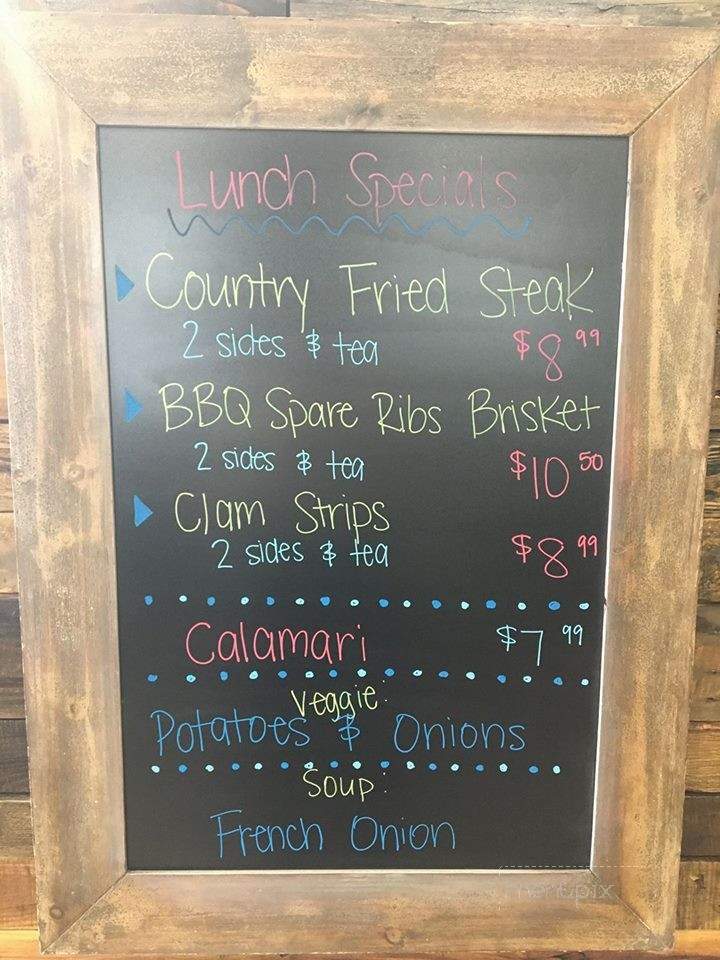 Lunch Specials
Country Fried Steak
2 sides & tea $8.99
BBQ Spare Ribs Brisket
2 sides & tea $10.50
Clam Strips
2 sides & tea $8.99
Calamari $7.99
Veggie:
Potatoes & Onions
Soup:
French Onion